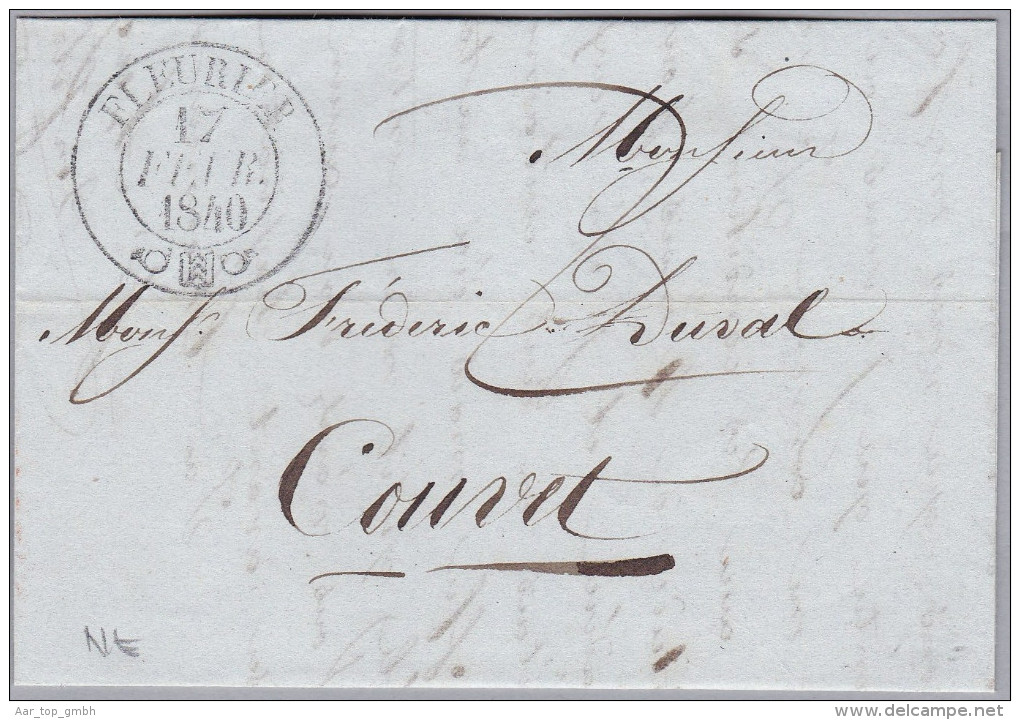 FLEURIER
17
FEVR.
1840
Monsieur
Monsr. Fréderic Duval
Couvet
NE
Aar_top_gmbh
www.delcampe.net